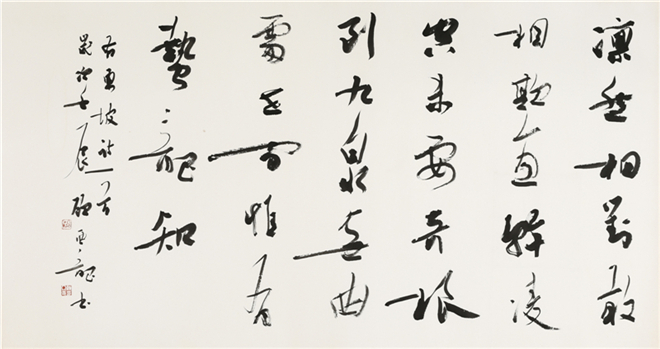 凛然相對敢
相欺直幹凌
空未要奇根
到九泉無曲
處世間惟有
蟄龍知
右東坡詩一首
歲次壬辰顧亞龍書